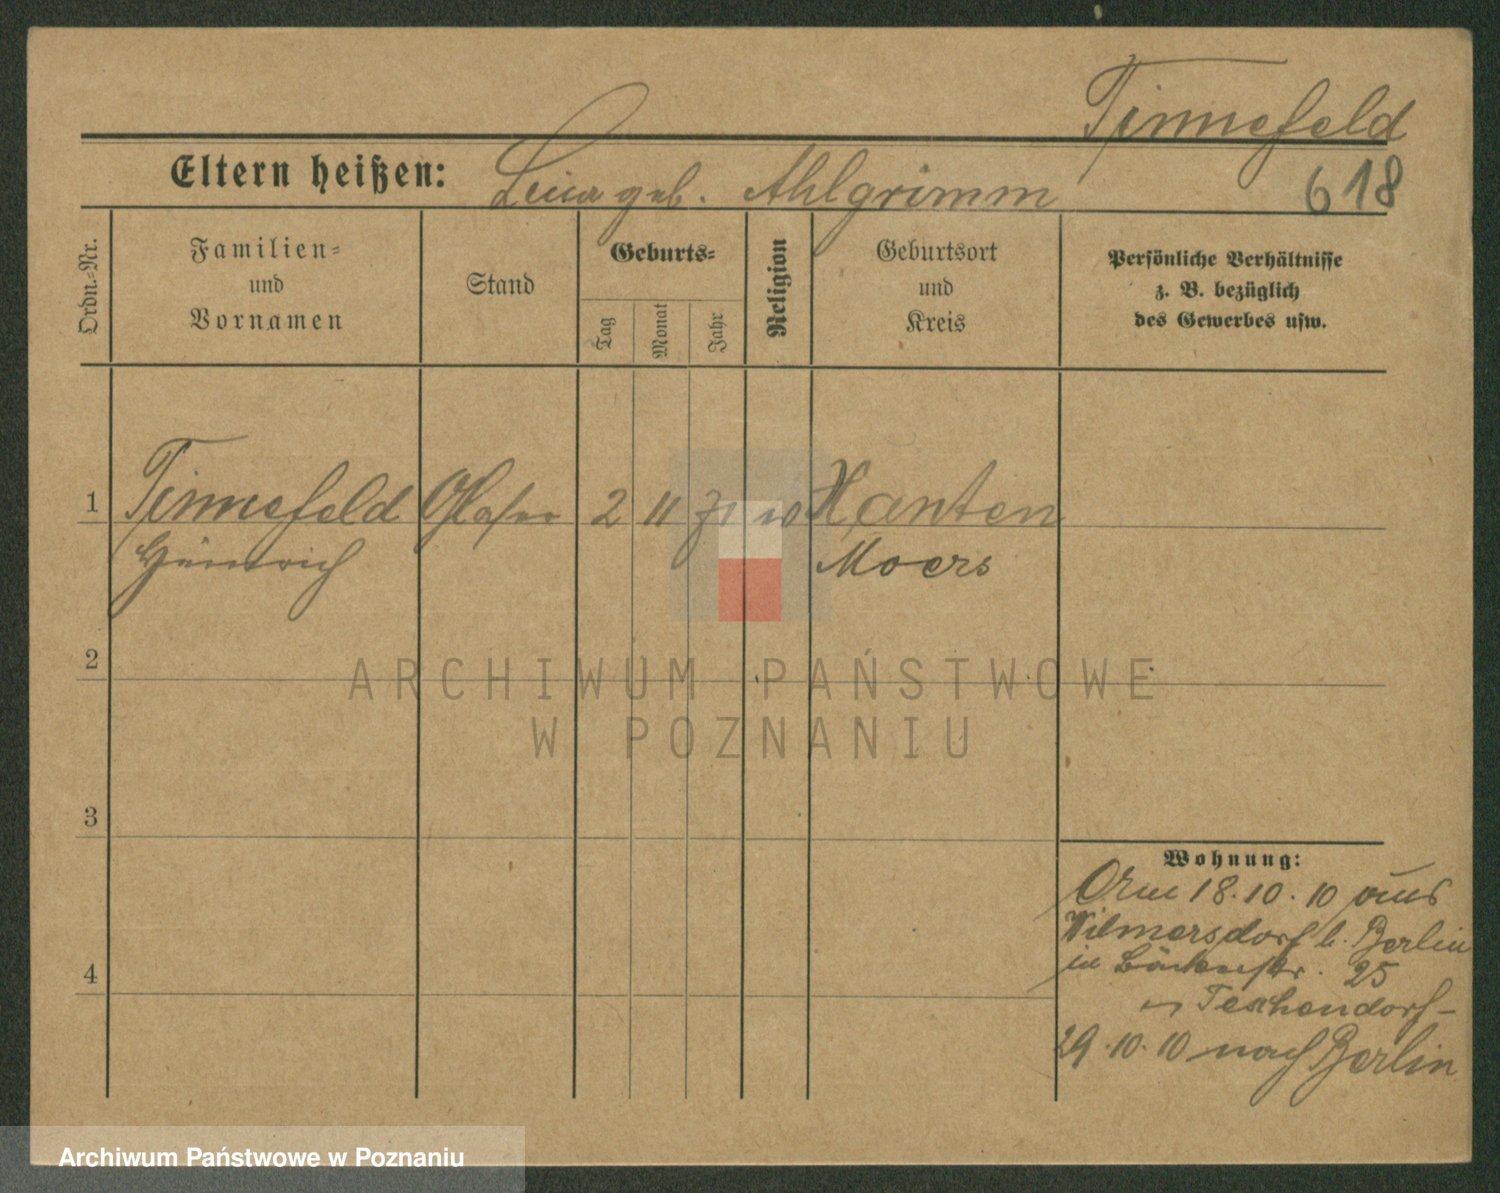 Tinnefeld
Eltern heißen: geb. Ahlgrimm
618
Ordn.-Nr.
Familien-
und
Vornamen
Stand
Geburts-
Tag
Monat
Jahr
Religion
Geburtsort
und
Kreis
Persönliche Verhältnisse
z. B. bezüglich
des Gewerbes usw.
1 Tinnefeld Glaser 2 11 71 Xanten
Heinrich Moers
2
3
4
Wohnung:
18.10.10 aus
Wilmersdorf b. Berlin
in 25
Teschendorf-
29.10.10 nach Berlin
ARCHIWUM PAŃSTWOWE
W POZNANIU
Archiwum Państwowe w Poznaniu